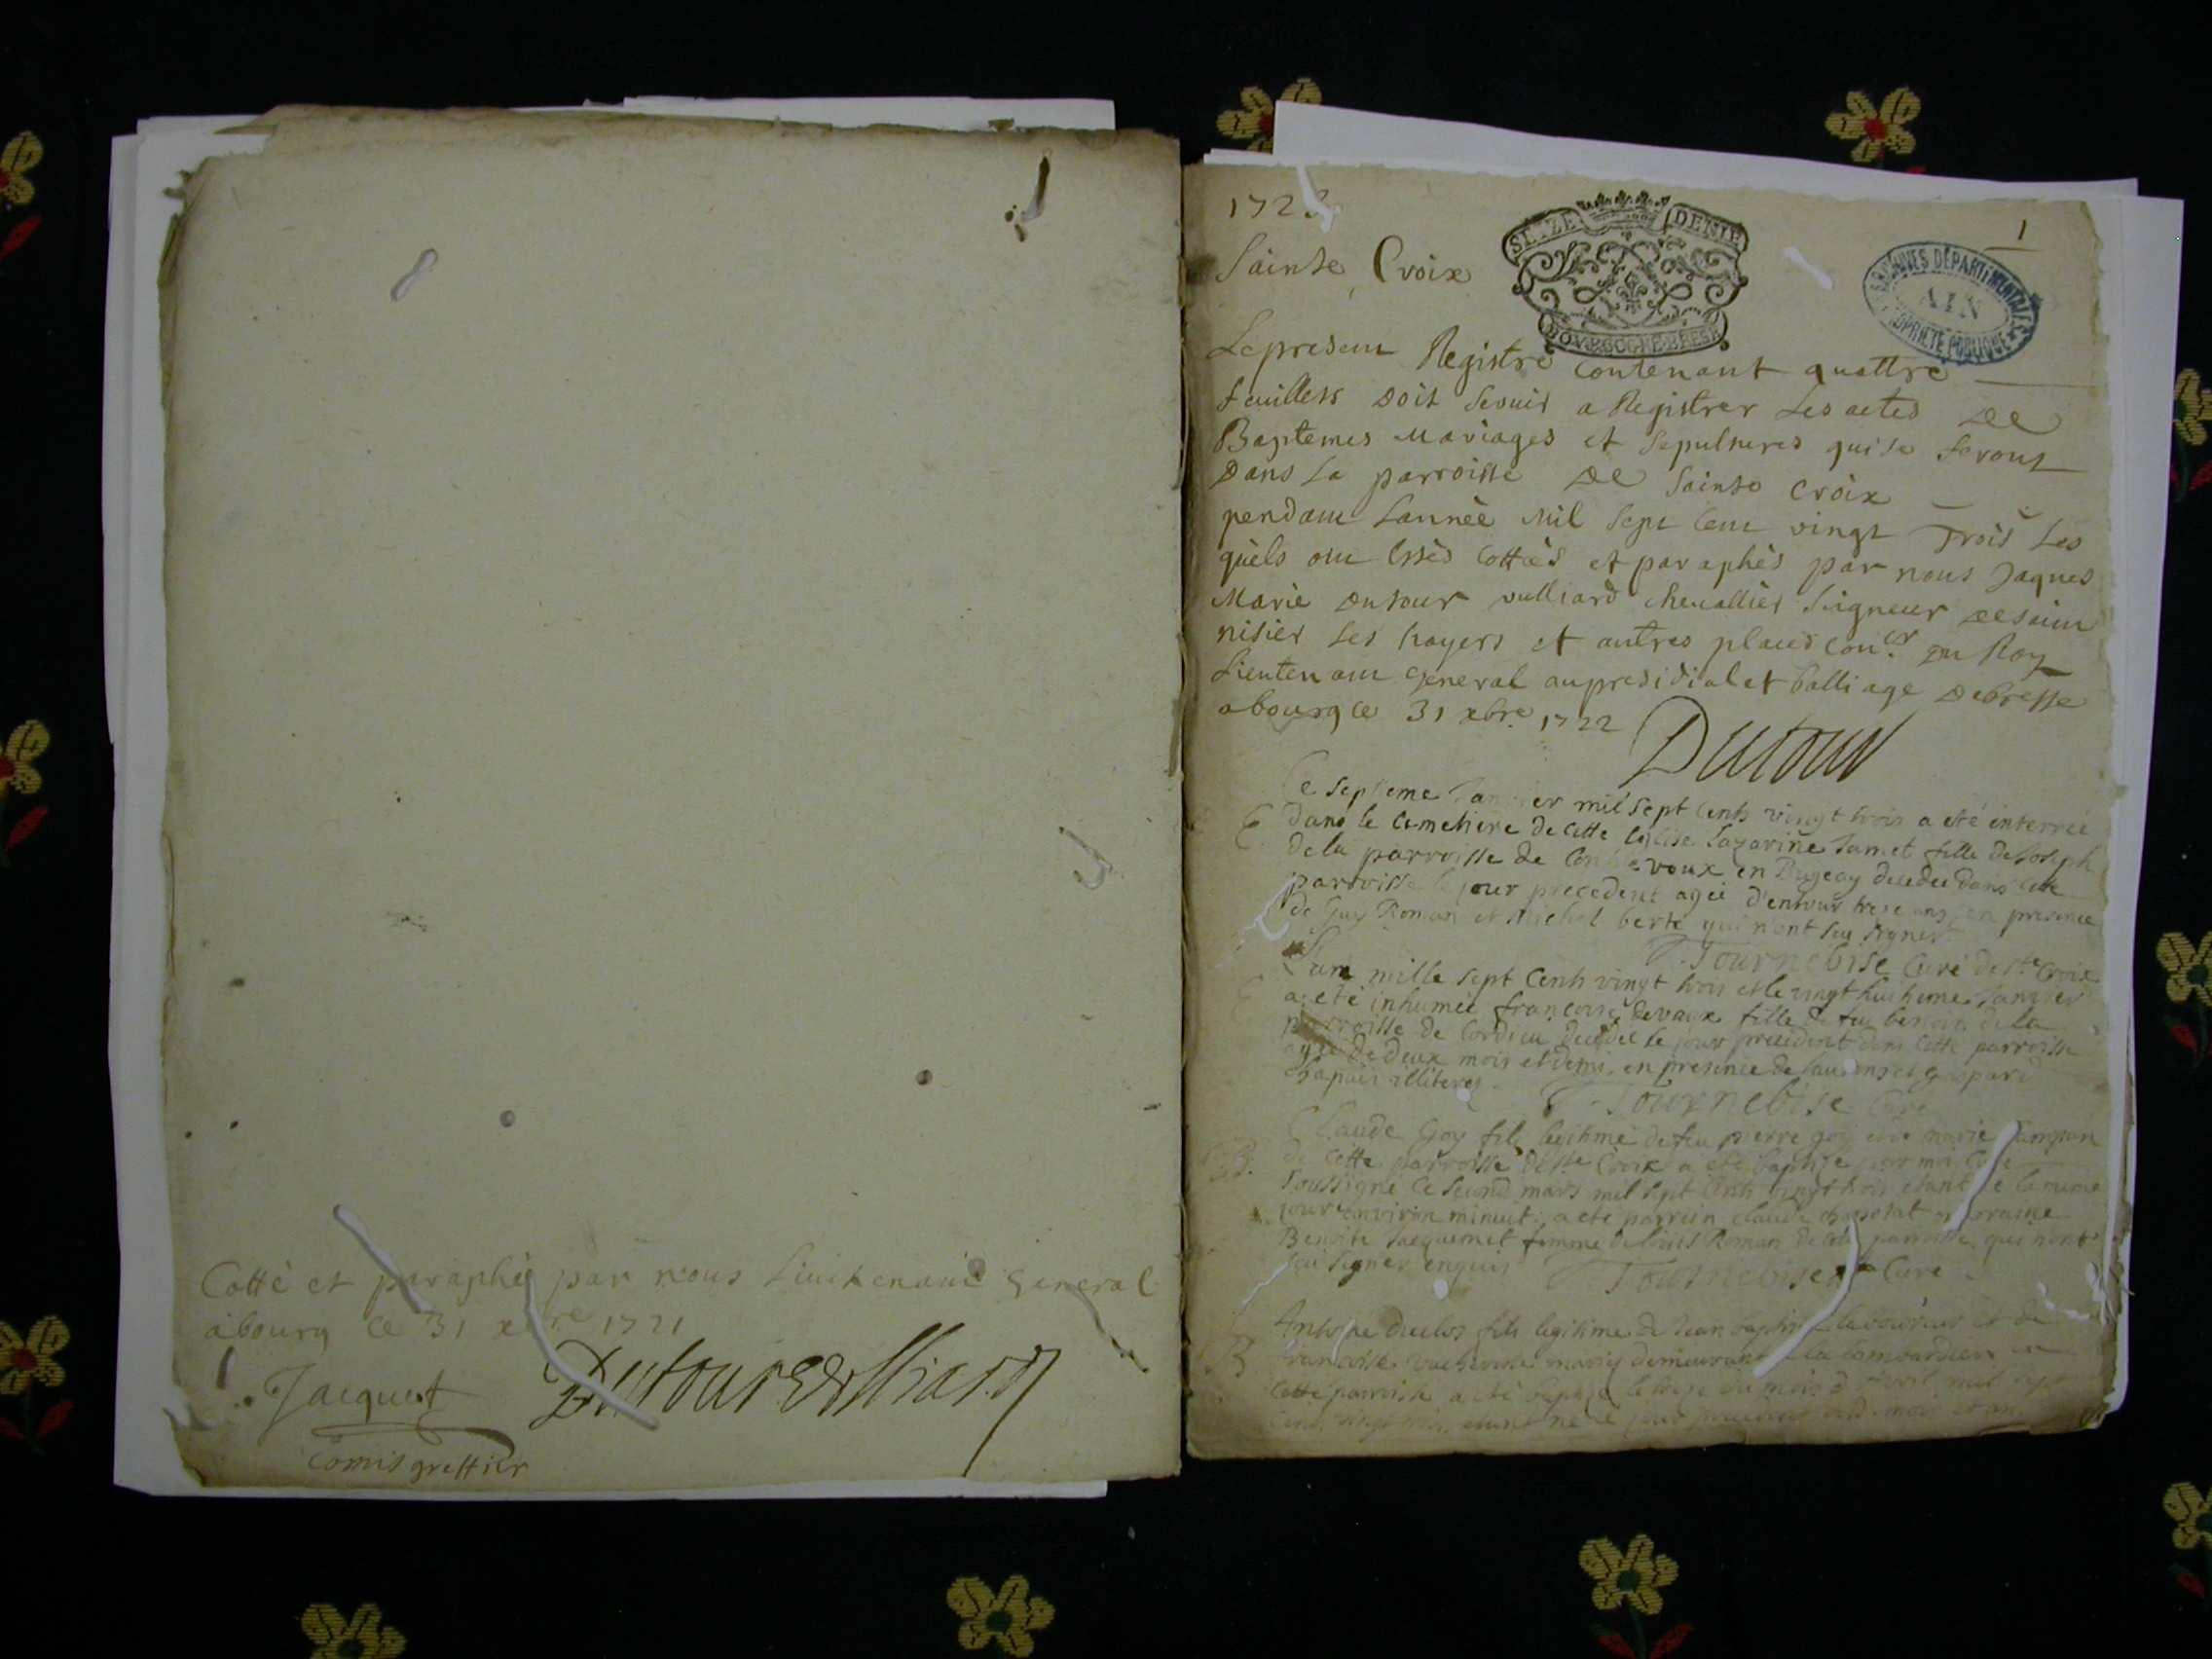 Cotté et paraphé par nous Lieutenant General
abourg ce 31 xbre 1721
Jacquet
Dutour Vulliard
Comis greffier
1723
1
Sainte Croix
SEIZE DENIE
BOURGOGNE BRESSE
ARCHIVES DÉPARTEMENTALES
AIN
PROPRIÉTÉ PUBLIQUE
Le present Registre contenant quattre
feuillets doit servir a Registrer Les actes De
Baptemes Mariages et Sepultures qui se feront
Dans La parroisse De Sainte Croix
pendant Lanneè Mil Sept Cent vingt Trois Les
quels ont Estés Cottés et paraphès par nous Jaques
Marie Dutour vulliard chevallier Seigneur De Saint
nisier Les et autres places Coner Du Roy
Lieutenant General au presidial et balliage De bresse
abourg ce 31 xbre 1722
Dutour
Ce septieme Janvier mil sept cents vingt trois a eté enterrée
E dans le Cimetiere de cette Eglise Lazarine Jamet fille de Joseph
de la parroisse de en Bugeay decedée dans cette
parroisse le jour precedent agée d'environ treze ans en presence
de Guy Roman et Michel berte qui n'ont seu signer
Tournebise Curé de Ste Croix
L'an mille sept cents vingt trois et le vingt huitieme Janvier
E a eté inhumée françoise Devaux fille de feu benoit de la
parroisse de Cordieu decedée le jour precedent dans cette parroisse
agée de deux mois et demi, en presence de et Gaspard
Chapuis illiterez
Tournebise Curé
Claude Goy fils legitime de feu pierre goy et de marie
B. de cette parroisse de Ste Croix a eté baptisé par moi Curé
soussigné ce second mars mil sept cents vingt trois etant né le meme
jour environ minuit, a eté parrein claude et maraine
Benoite Jacquemet femme de Roman de cette parroisse qui n'ont
sçeu signer enquis
Tournebise Curé
Antoine Duclos fils legitime de Jean baptiste laboureur et de
B françoise mariez demeurant en
cette parroisse a eté baptisé le du mois d'avril mil sept
cents vingt trois, etant né le jour precedent